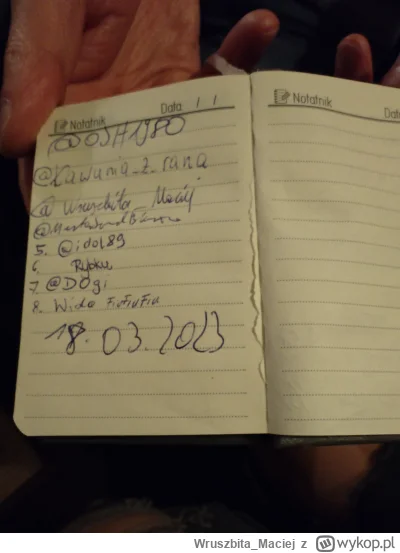 Notatnik Data: / /
@OSH1980
@Kawunia_z_rana
@Wruszbita_Maciej
5. @idol89
6. Rybku
7. @DOgi
8. Wido FiuFiuFiu
18.03.2023
Notatnik
Wruszbita_Maciej z wykop.pl